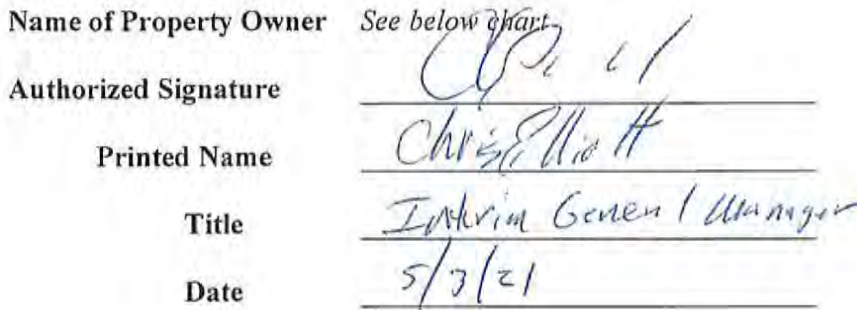 Name of Property Owner See below chart
Authorized Signature
Printed Name Chris Elliott
Title Interim General Manager
Date 5/3/21